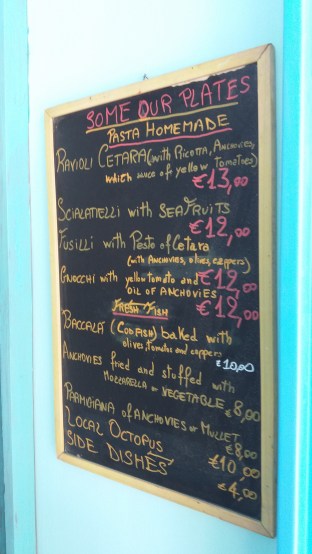 SOME OUR PLATES
PASTA HOMEMADE
RAVIOLI CETARA (with RICOTTA, ANCHOVIES,
which sauce of yellow tomatoes)
€13,00
SCIALATIELLI with SEAFRUITS
€12,00
FUSILLI with Pesto of Cetara
(with ANCHOVIES, olives, cappers)
€12,00
GNOCCHI with yellow tomato and
OIL OF ANCHOVIES
€12,00
FRESH FISH
BACCALÀ (CODFISH) baked with
olives, tomatos and cappers
€10,00
ANCHOVIES fried and stoffed with
MOZZARELLA or VEGETABLE €8,00
PARMIGIANA of ANCHOVIES or MULLET
€8,00
LOCAL OCTOPUS €10,00
SIDE DISHES €4,00